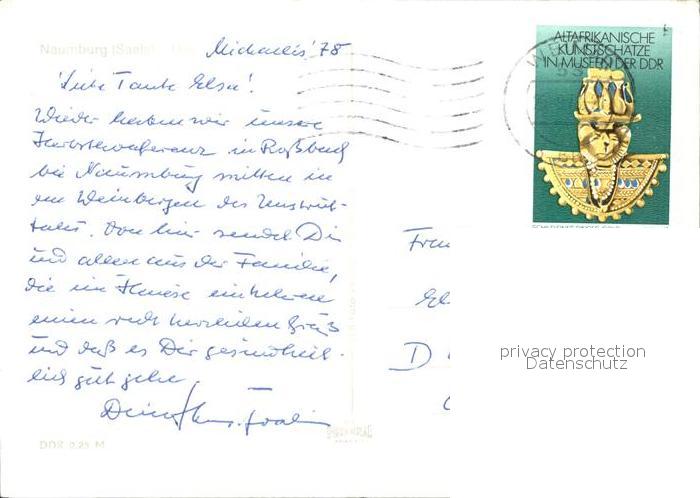 Naumburg (Saale)
Michaelis '78
Liebe Tante Elsa!
Wieder haben wir unsere
Herbstkonferenz in Roßbach
bei Naumburg mitten in
den Weinbergen des Unstrut-
tales. Von hier sendet Dir
und allen aus der Familie,
die im Hause einkehren
einen recht herzlichen Gruß
und daß es Dir gesundheit-
lich gut gehe,
Dein
ALTAFRIKANISCHE
KUNSTSCHÄTZE
IN MUSEEN DER DDR
Frau
El
D
privacy protection
Datenschutz
DDR 0,25 M